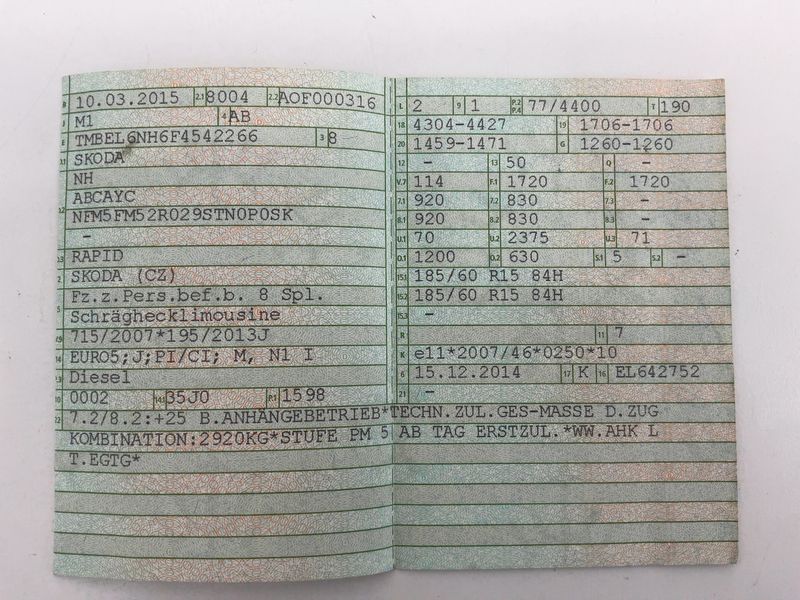 B 10.03.2015 2.1 8004 2.2 AOF000316
J M1 4 AB
E TMBEL6NH6F4542266 3 8
D.1 SKODA
NH
ABCAYC
D.2 NFM5FM52R029STN0P0SK
–
D.3 RAPID
2 SKODA (CZ)
5 Fz.z.Pers.bef.b. 8 Spl.
Schräghecklimousine
V.9 715/2007*195/2013J
14 EURO5;J;PI/CI; M, N1 I
P.3 Diesel
10 0002 14.1 35J0 P.1 1598
L 2 9 1 P.2 P.4 77/4400 T 190
18 4304-4427 19 1706-1706
20 1459-1471 G 1260-1260
12 – 13 50 Q –
V.7 114 F.1 1720 F.2 1720
7.1 920 7.2 830 7.3 –
8.1 920 8.2 830 8.3 –
U.1 70 U.2 2375 U.3 71
O.1 1200 O.2 630 S.1 5 S.2 –
15.1 185/60 R15 84H
15.2 185/60 R15 84H
15.3 –
R 11 7
K e11*2007/46*0250*10
6 15.12.2014 17 K 16 EL642752
21 –
7.2/8.2:+25 B.ANHÄNGEBETRIEB*TECHN.ZUL.GES-MASSE D.ZUG
KOMBINATION:2920KG*STUFE PM 5 AB TAG ERSTZUL.*WW.AHK L
T.EGTG*